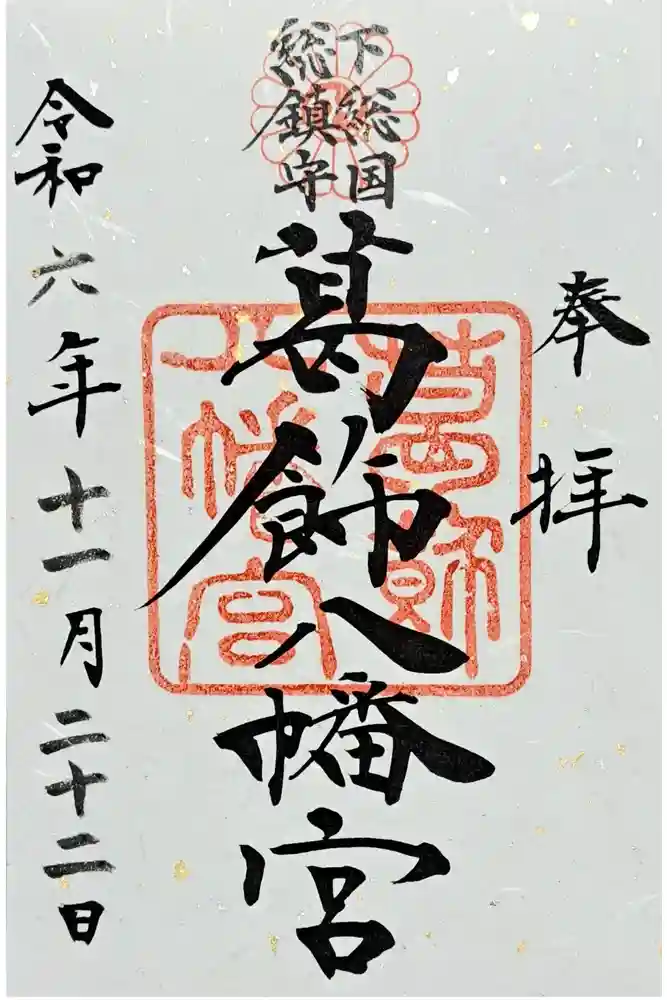 奉拝
下総国
総鎮守
葛飾八幡宮
葛飾
八幡宮
令和六年十一月二十二日